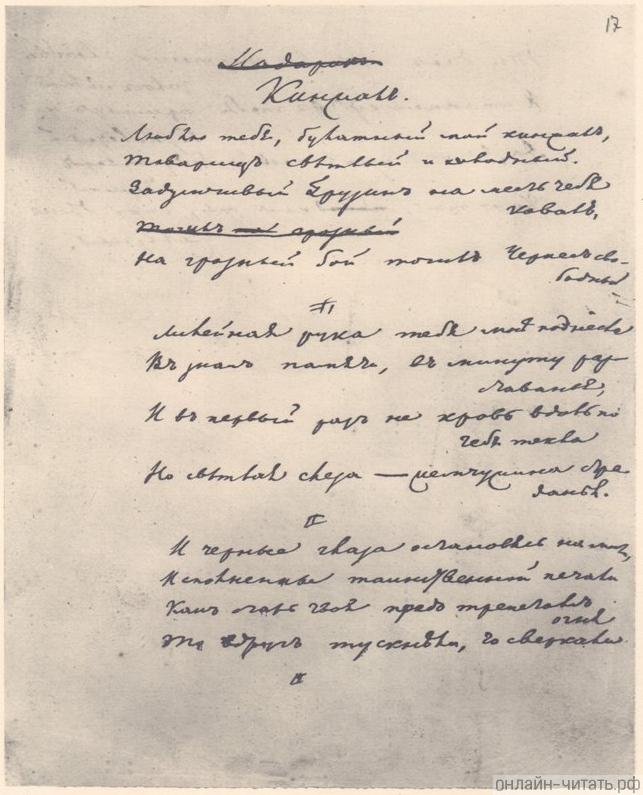 17
Подарокъ
Кинжалъ.
Люблю тебя, булатный мой кинжалъ,
Товарищъ свѣтлый и холодный.
Задумчивый Грузинъ на месть тебя
ковалъ,
На грозный бой точилъ Черкесъ сво-
бодный
Лилейная рука тебя мнѣ поднесла
Въ знакъ памяти, въ минуту рас-
ставанья,
И въ первый разъ не кровь вдоль по
тебѣ текла
Но свѣтлая слеза — жемчужина стра-
данья.
И черные глаза остановясь на мнѣ,
Исполненны таинственной печали
Какъ сталь твоя предъ трепетномъ
огнѣ
То вдругъ тускнѣли, то сверкали
онлайн-читать.рф